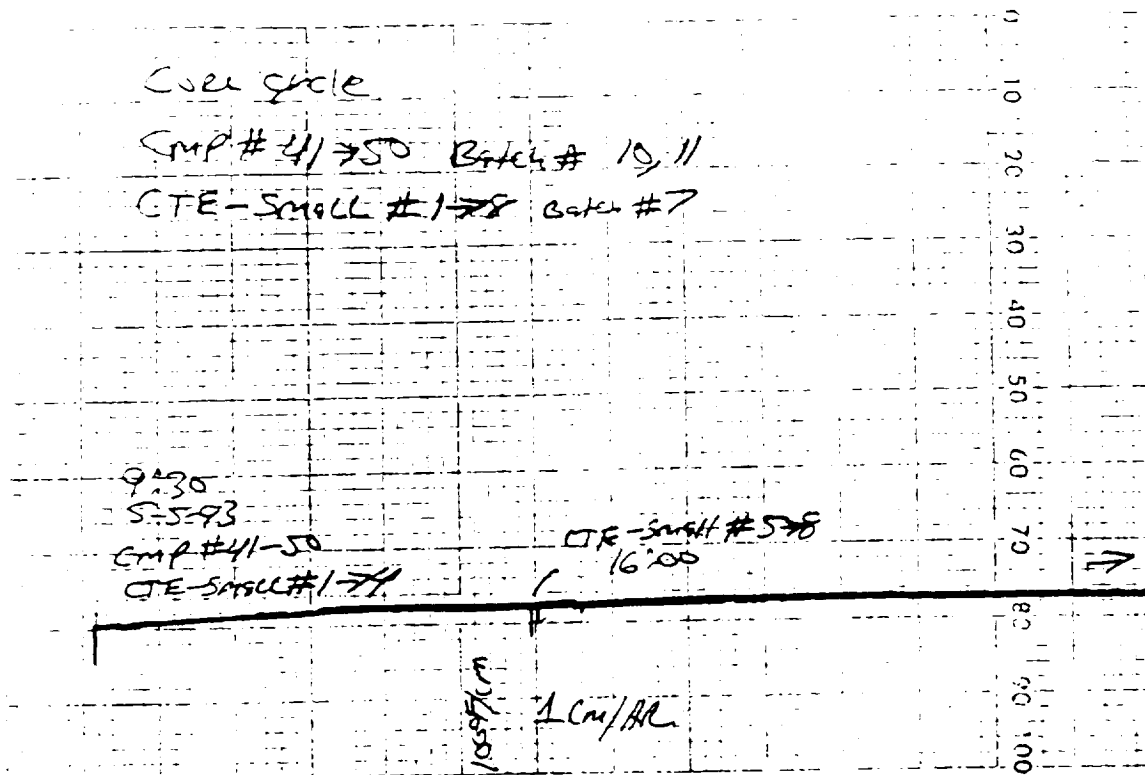 Cure cycle
CMP # 41→50 Batch # 10, 11
CTE-Small #1→8 Batch #7
9:30
5-5-93
CMP #41-50
CTE-Small #1→4
CTE-Small #5→8
16:00
1 cm/HR
0
10
20
30
40
50
60
70
80
90
100